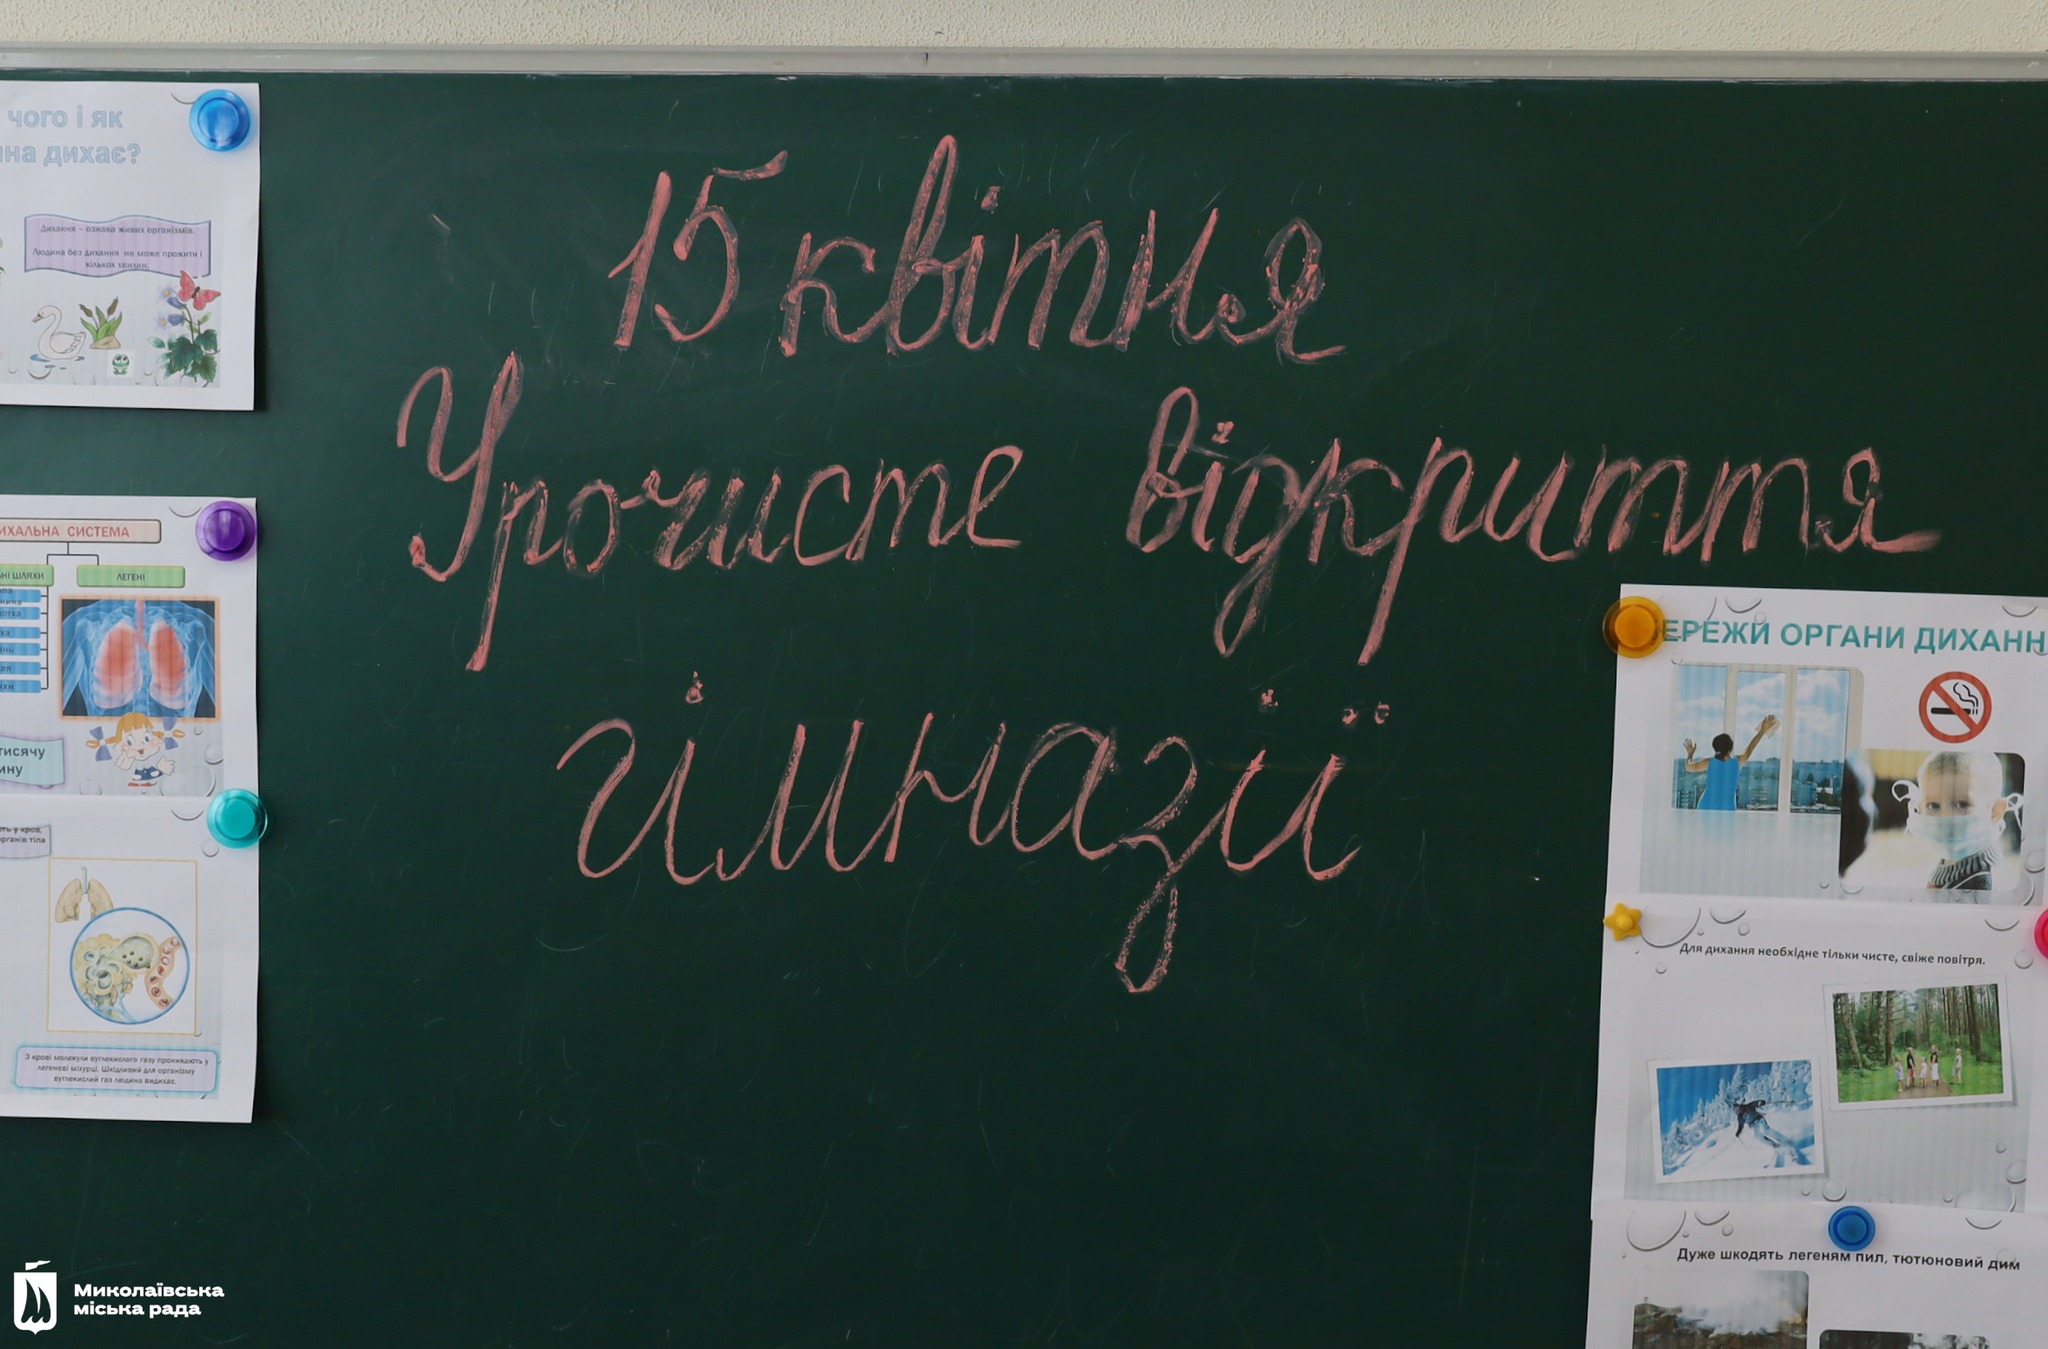 чого і як
дихає?
Дихання – ознака живих організмів.
Людина без дихання не може прожити і
кількох хвилин.
СИСТЕМА
ШЛЯХИ
ЛЕГЕНІ
тисячу
у кров,
органів тіла
З крові молекули вуглекислого газу проникають у
легеневі міхурці. Шкідливий для організму
вуглекислий газ людина видихає.
15 квітня
Урочисте відкриття
гімназії
ЕРЕЖИ ОРГАНИ ДИХАНН
Для дихання необхідне тільки чисте, свіже повітря.
Дуже шкодять легеням пил, тютюновий дим
Миколаївська
міська рада